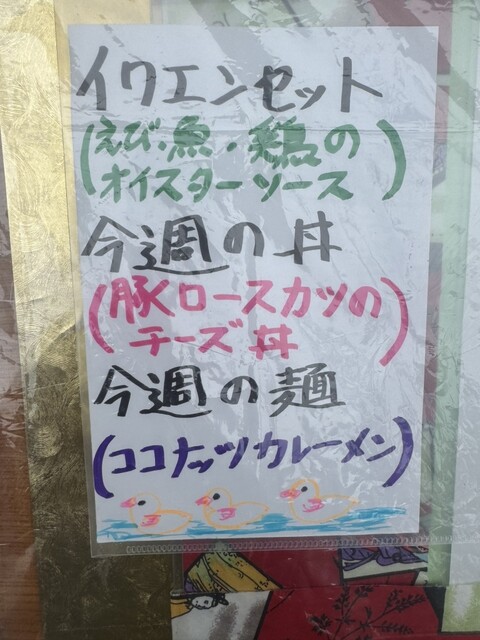 イワエンセット
(えび・魚・鶏の
オイスターソース)
今週の丼
(豚ロースカツの
チーズ丼)
今週の麺
(ココナッツカレーメン)